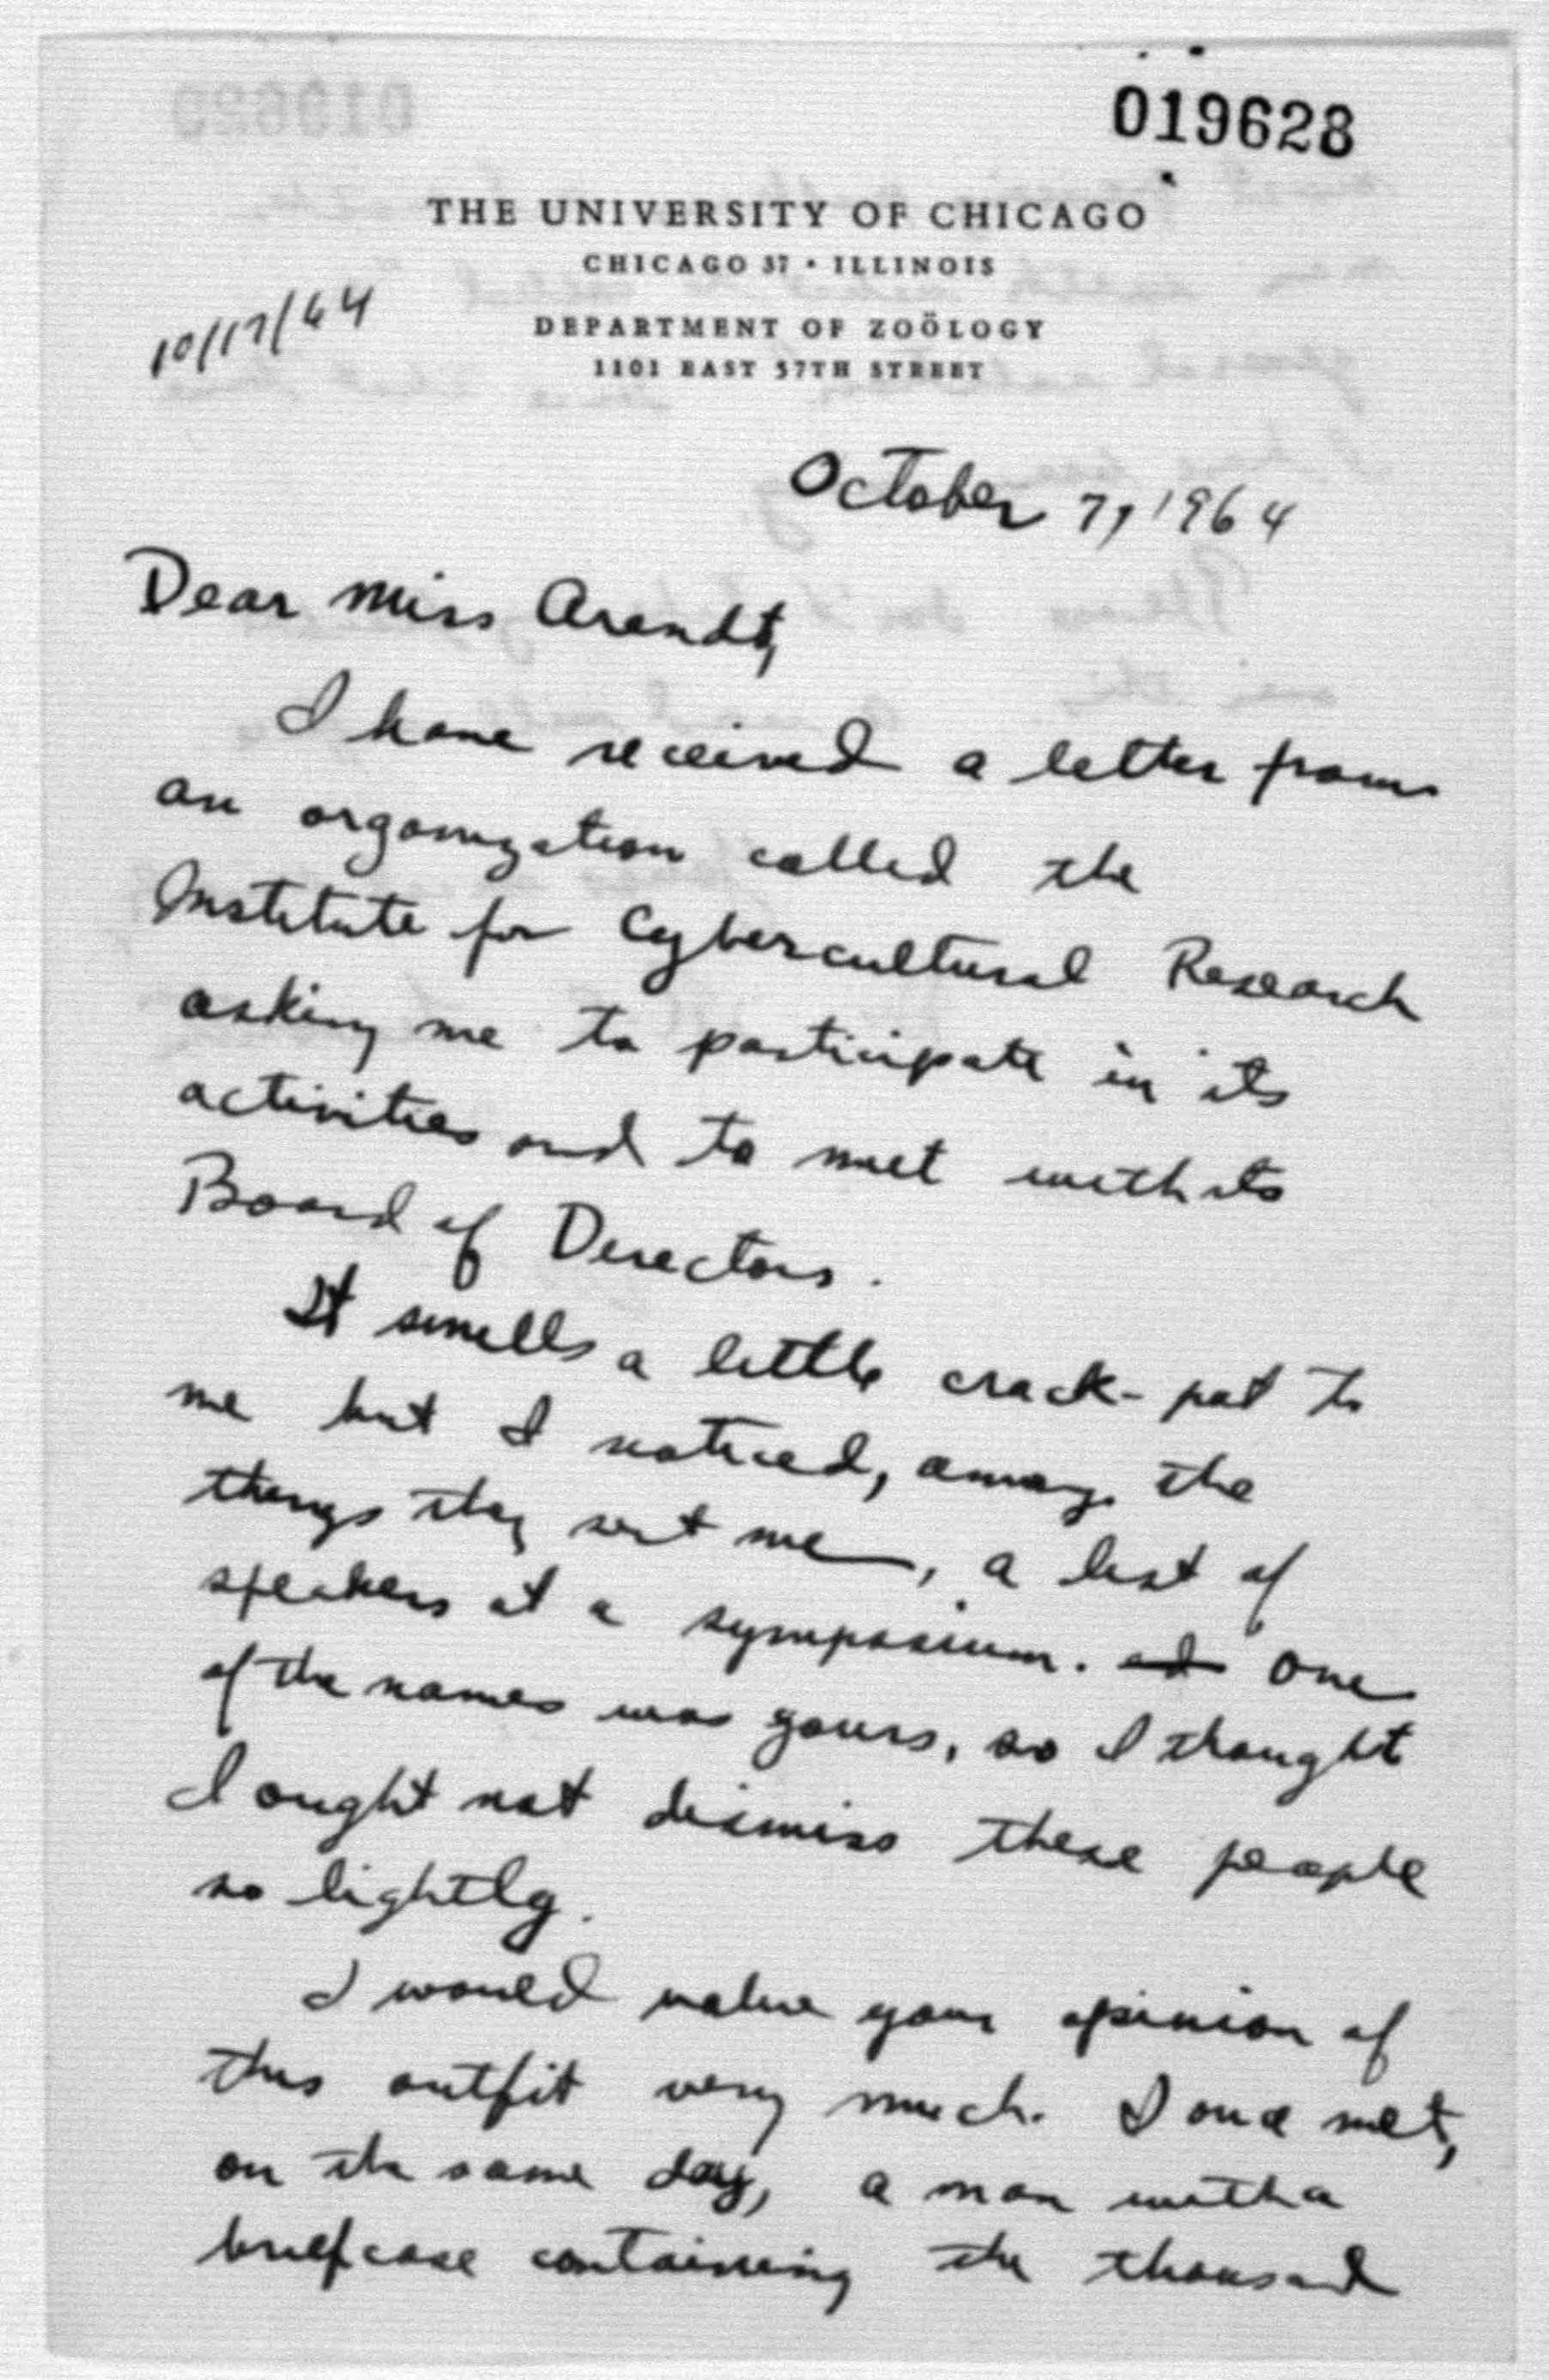 019628
THE UNIVERSITY OF CHICAGO
CHICAGO 37 • ILLINOIS
DEPARTMENT OF ZOÖLOGY
1101 EAST 57TH STREET
10/17/64
October 7, 1964
Dear Miss Arendt,
I have received a letter from
an organization called the
Institute for Cybercultural Research
asking me to participate in its
activities and to meet with its
Board of Directors.
It smells a little crack-pot to
me but I noticed, among the
things they sent me, a list of
speakers at a symposium. One
of the names was yours, so I thought
I ought not dismiss these people
so lightly.
I would value your opinion of
this outfit very much. I once met,
on the same day, a man with a
briefcase containing the thousand